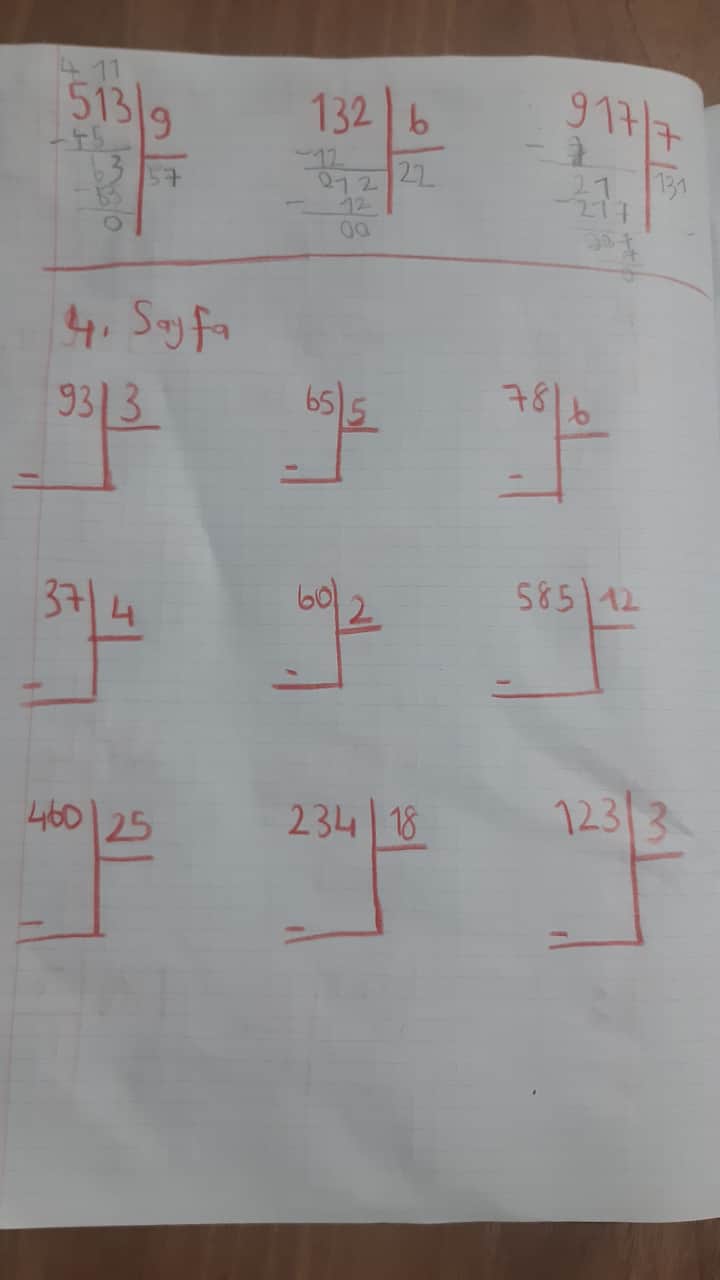 4 11
513 9 132 6 917 7
-45 57 -12 22 - 7 131
63 012 21
-63 - 12 -21
0 00 007
7
0
4. Sayfa
93 3 65 5 78 6
- - -
37 4 60 2 585 12
- - -
460 25 234 18 123 3
- - -